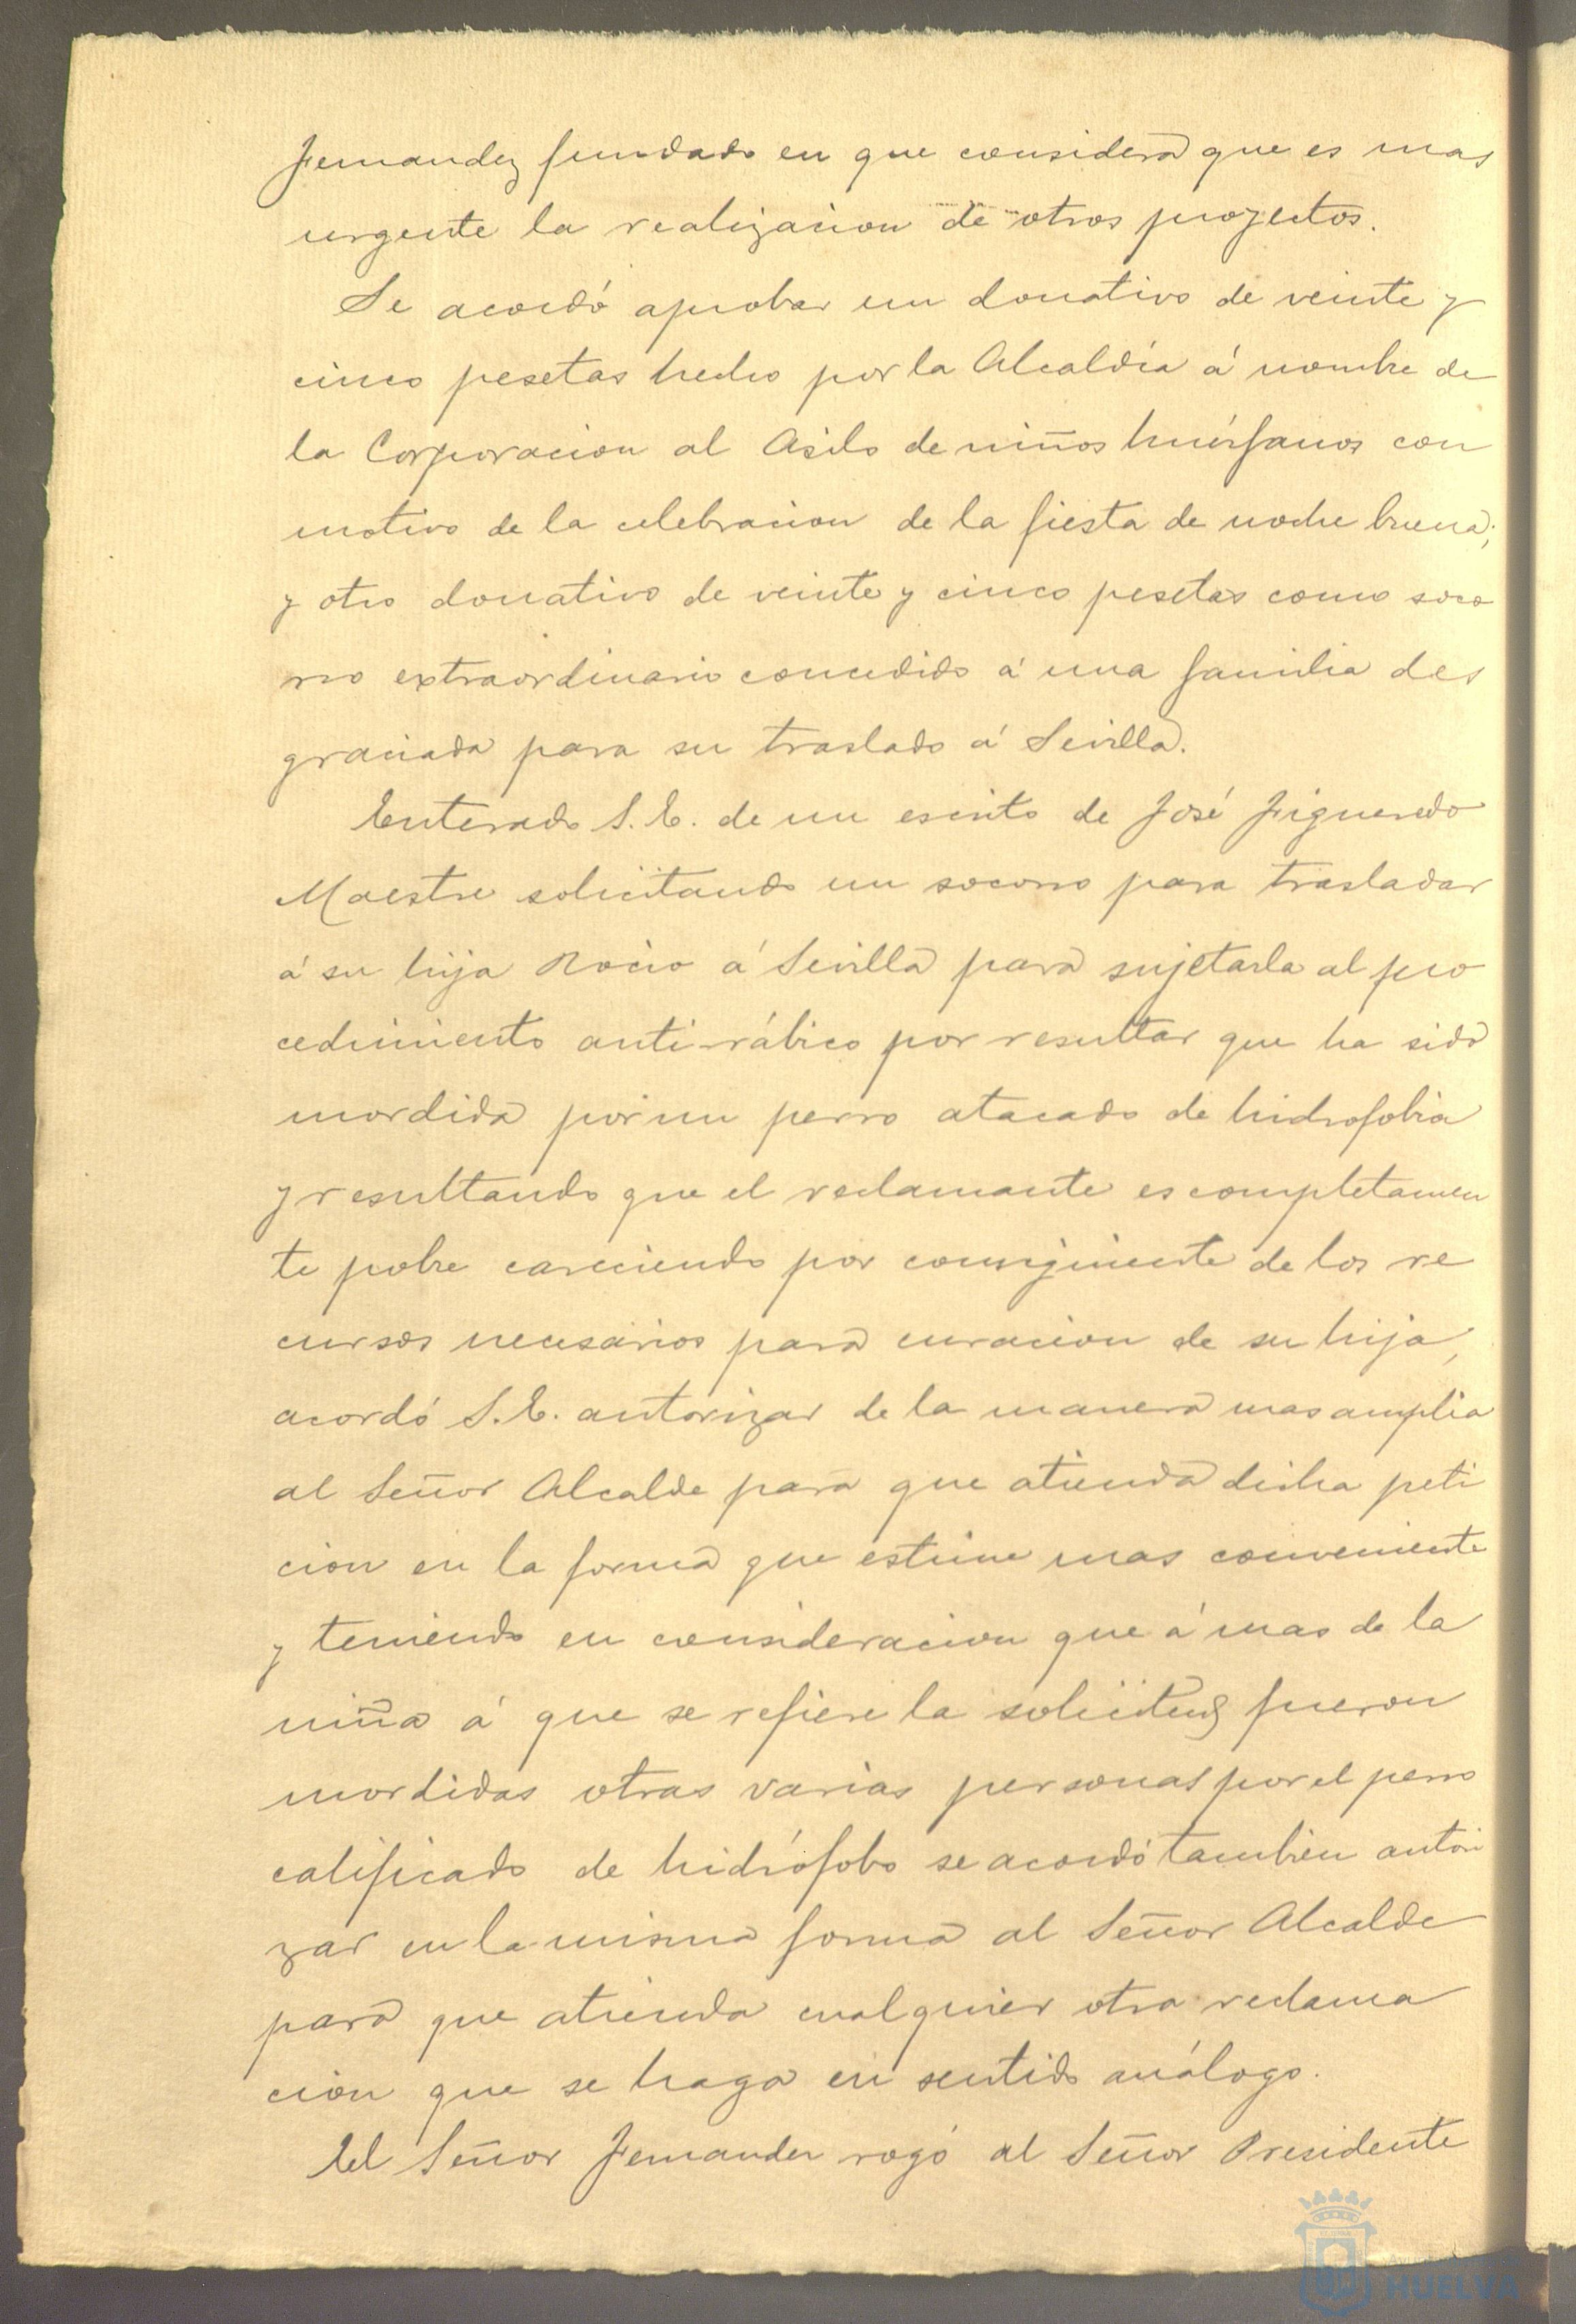 Fernandez fundado en que considera que es mas
urgente la realizacion de otros proyectos.
Se acordó aprobar un donativo de veinte y
cinco pesetas hecho por la Alcaldía á nombre de
la Corporacion al Asilo de niños huérfanos con
motivo de la celebracion de la fiesta de noche buena;
y otro donativo de veinte y cinco pesetas como soco
rro extraordinario concedido á una familia des
graciada para su traslado á Sevilla.
Enterado S. E. de un escrito de José Figueredo
Maestre solicitando un socorro para trasladar
á su hija Rocio á Sevilla para sujetarla al pro
cedimiento anti-rábico por resultar que ha sido
mordida por un perro atacado de hidrofobia
y resultando que el reclamante es completamen
te pobre careciendo por consiguiente de los re
cursos necesarios para curacion de su hija,
acordó S. E. autorizar de la manera mas amplia
al Señor Alcalde para que atienda dicha peti
cion en la forma que estime mas conveniente
y teniendo en consideracion que á mas de la
niña á que se refiere la solicitud fueron
mordidas otras varias personas por el perro
calificado de hidrófobo se acordó tambien autori
zar en la misma forma al Señor Alcalde
para que atienda cualquier otra reclama
cion que se haga en sentido análogo.
El Señor Fernandez rogó al Señor Presidente
HUELVA